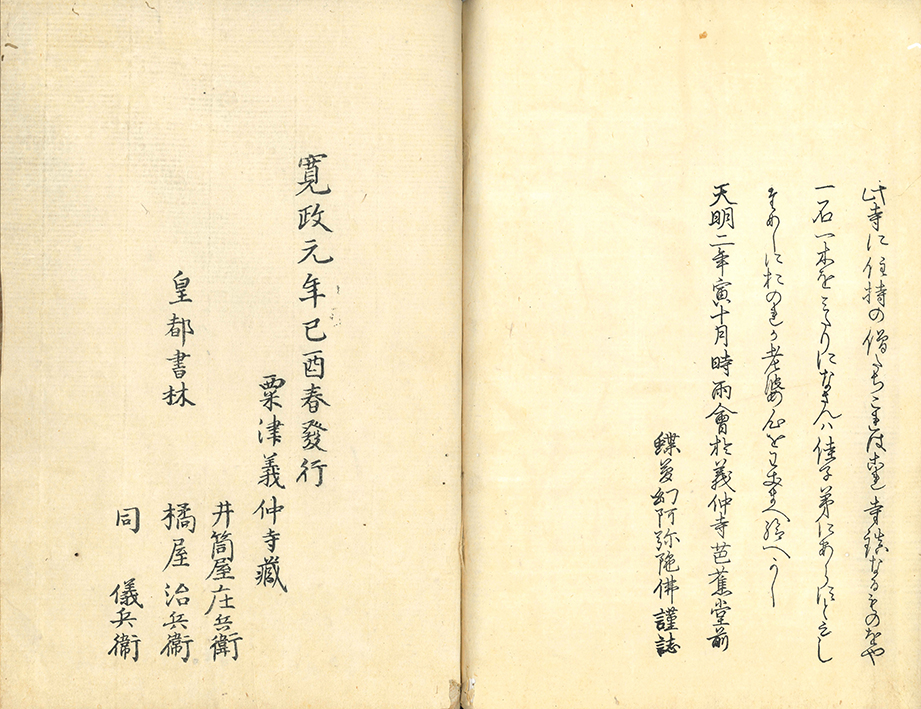 此寺に住持の僧たちこれはこれ寺鎮なるものをや
一石一木をみたりになさんハ佳子弟にあらすとしし
めしにおのれか老婆心をわきまへ給へかし
天明二年寅十月時雨會於義仲寺芭蕉堂前
蝶夢幻阿弥陀佛謹誌
寛政元年己酉春發行
粟津義仲寺藏
皇都書林
井筒屋庄兵衛
橘屋治兵衛
同 儀兵衛